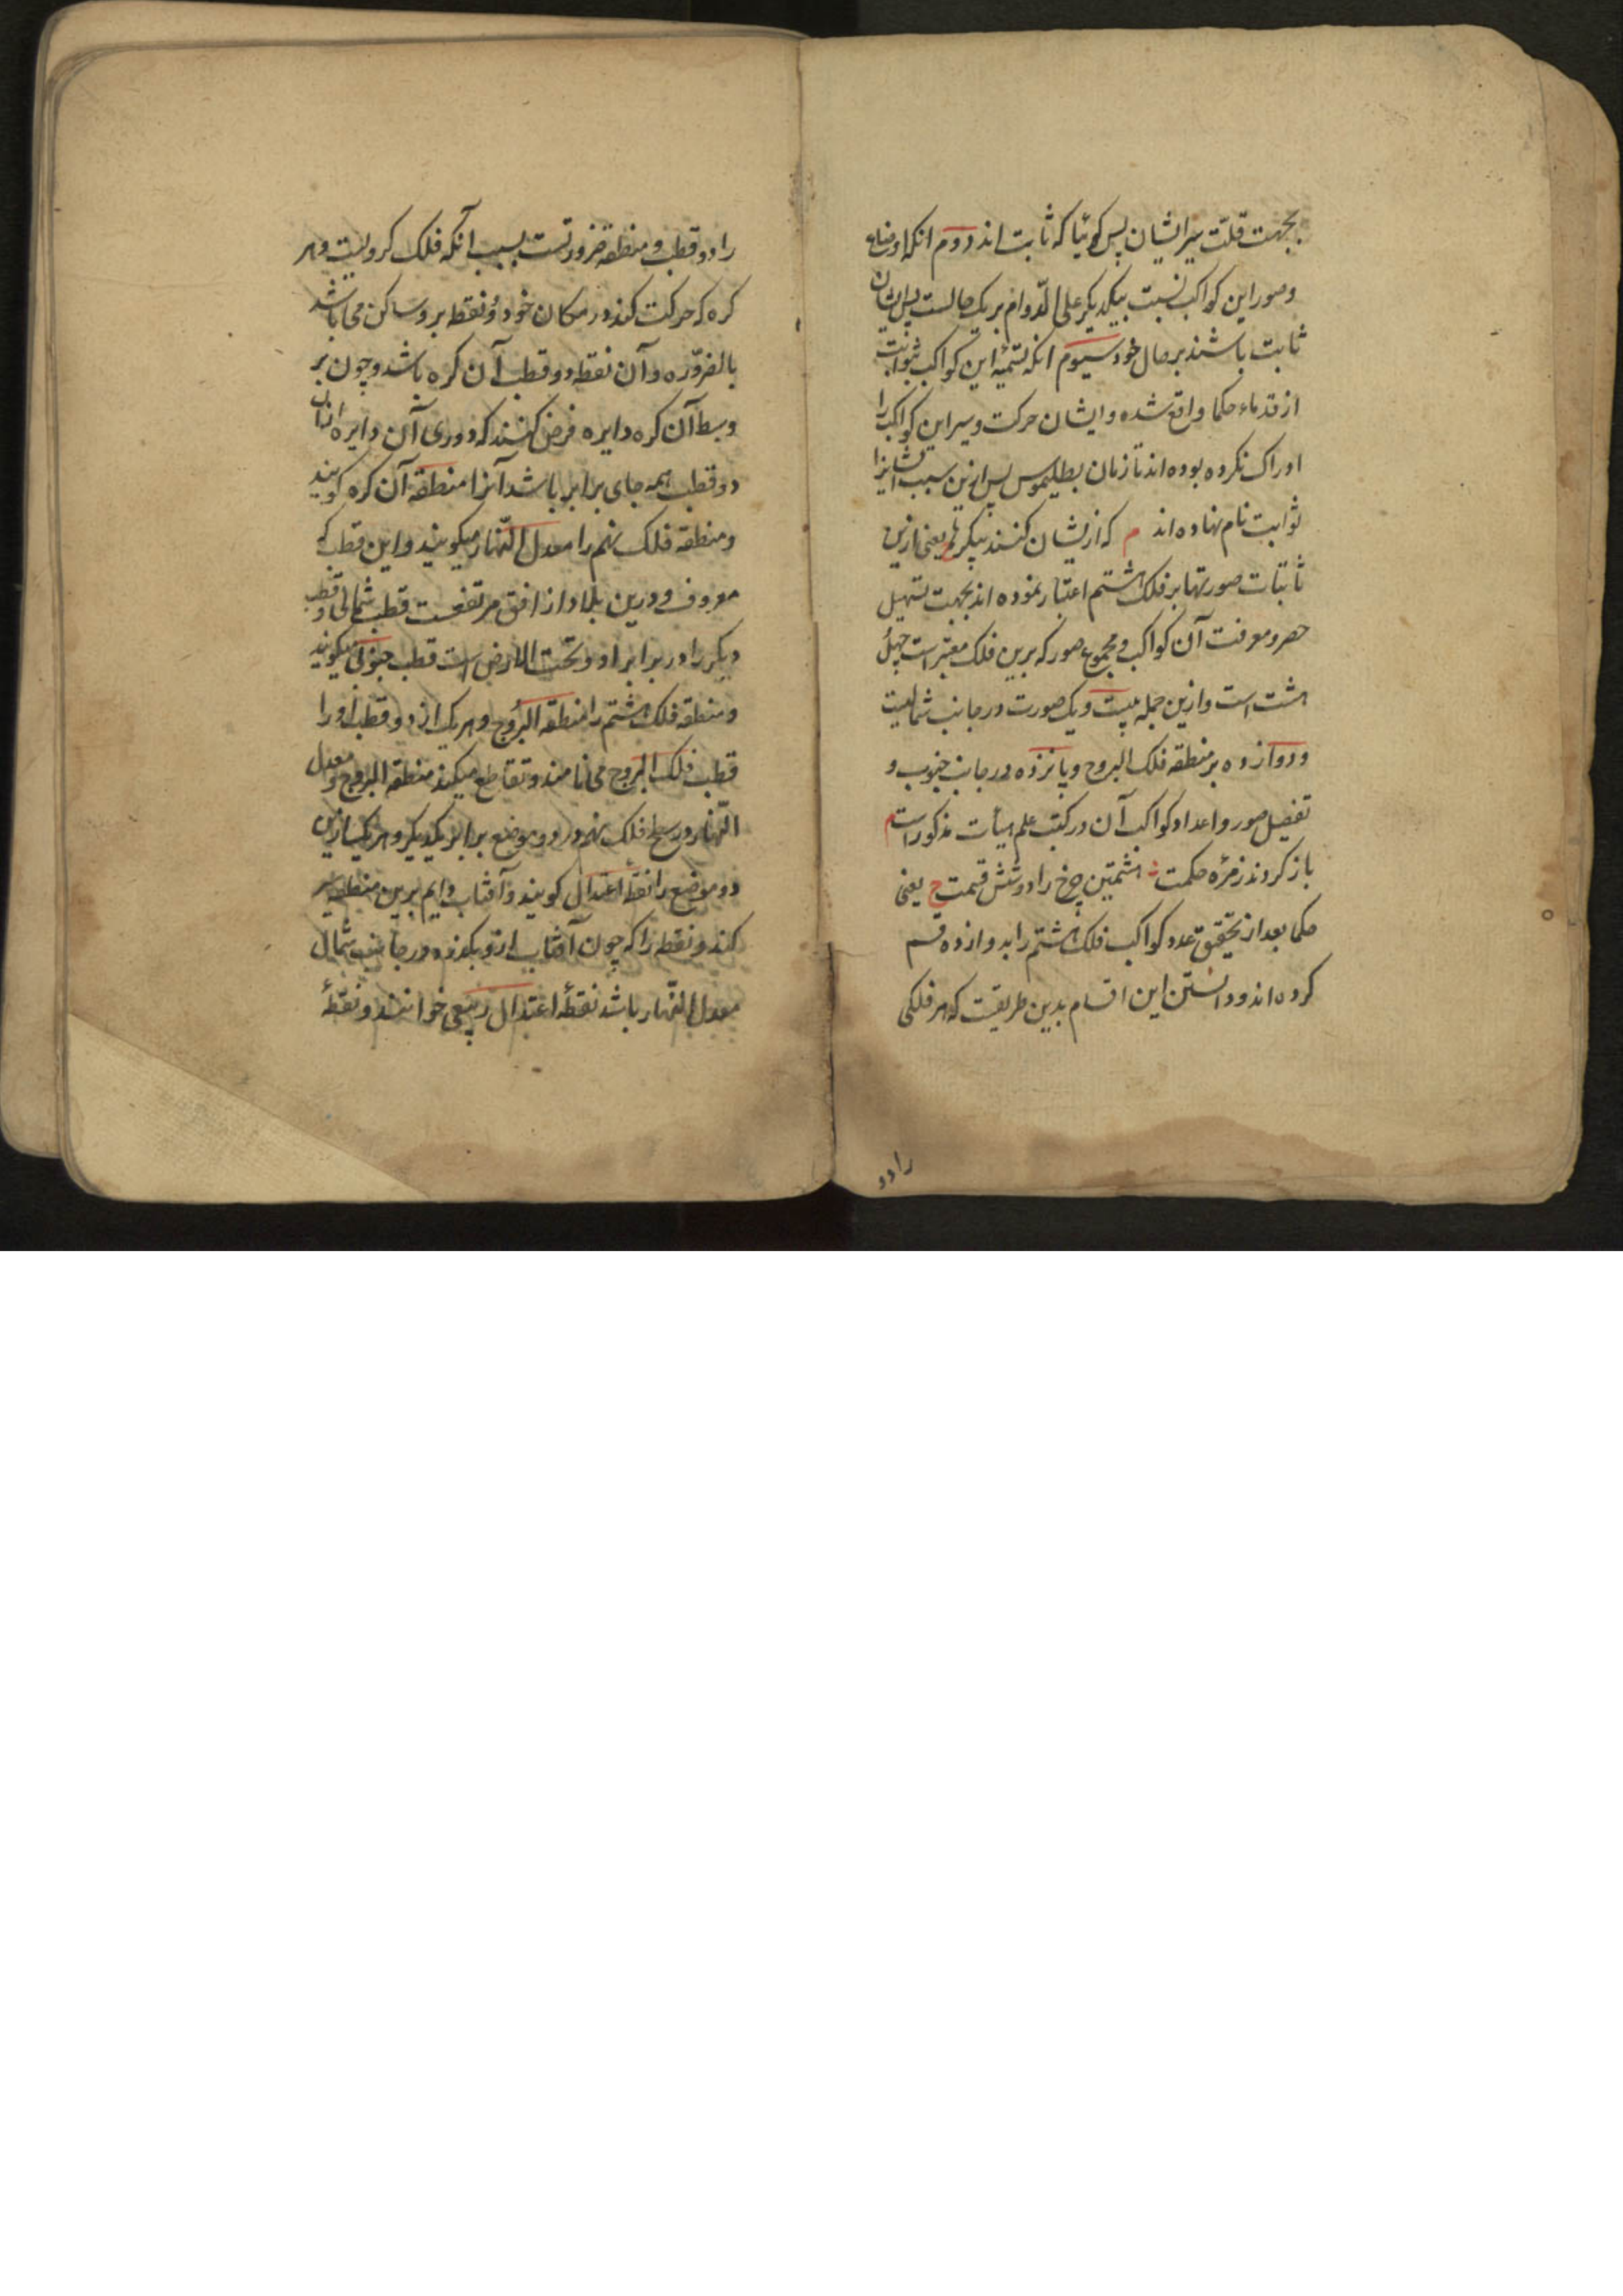 بجهت قلّت سیر ایشان پس کوئیا که ثابت اند دوم انکه اوضاع
وصور این کواکب نسبت بیکدیکر علی الدّوام بر یک حالست پس ایشان
ثابت باشند بر حال خود سیوم انکه تسمیهٔ این کواکب بثوابت
از قدماء حکما واقع شده وایشان حرکت وسیر این کواکب را
ادراک نکرده بوده اند تا زمان بطلیموس پس ازین سبب ایشانرا
ثوابت نام نهاده اند م که ازیشان کنند پیکرها یعنی ازین
ثابتات صورتها بر فلک هشتم اعتبار نموده اند بجهت تسهیل
حصر ومعرفت آن کواکب ومجموع صور که برین فلک معتبر است چهل
هشت است وازین جمله بیست ویک صورت در جانب شمالیست
ودوازده بر منطقه فلک البروج وپانزده در جانب جنوب و
تفصیل صور واعداد کواکب آن در کتب علم هیأت مذکور است م
باز کردند زمرهٔ حکمت هشتمین چرخ را دوشش قسمت ح یعنی
حکما بعد از تحقیق عدد کواکب فلک هشتم را بدوازده قسم
کرده اند ودانستن این اقسام بدین طریقست که هر فلکی
رادو
را دو قطب ومنطقه ضرورتست بسبب آنکه فلک کرویست وهر
کره که حرکت کند در مکان خود دو نقطه برو ساکن می باشد
بالضروره وآن نقطه دو قطب آن کره باشد وچون بر
وسط آن کره دایره فرض کنند که دوری آن دایره ازان
دو قطب همه جای برابر باشد آنرا منطقه آن کره کویند
ومنطقه فلک نهم را معدل النّهار میکویند واین قطب که
معروف ودرین بلاد از افق مرتفعست قطب شمالی وقطب
دیکر را در برابر او وتحت الارض است قطب جنوبی میکویند
ومنطقه فلک هشتم را منطقة البروج وهر یک از دو قطب او را
قطب فلک البروج می نامند وتقاطع میکند منطقة البروج ومعدل
النّهار در سطح فلک نهم در دو موضع برابر یکدیکر وهر یک ازین
دو موضع را نقطهٔ اعتدال کویند وآفتاب دایم برین منطقه سیر
کند ونقطه را که چون آفتاب ازو بکذرد در جانب شمال
معدل النّهار باشد نقطهٔ اعتدال ربیعی خوانند ونقطهٔ